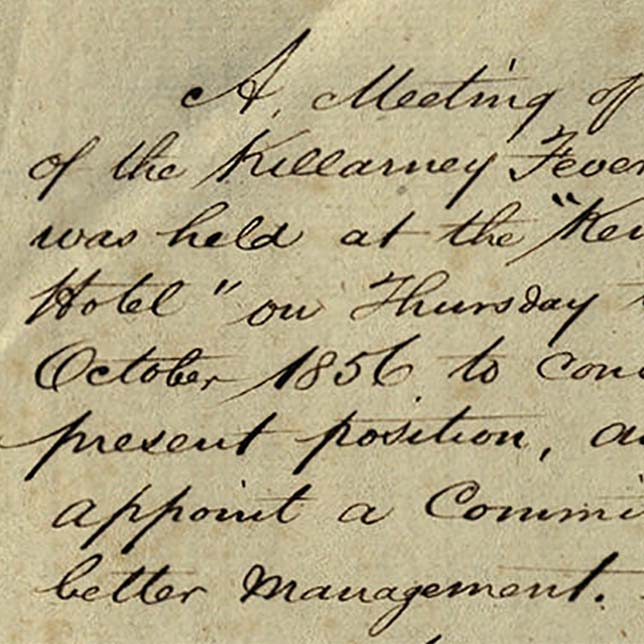 A Meeting of
of the Killarney Fever
was held at the "Ken
Hotel" on Thursday
October 1856 to con
present position, an
appoint a Commi
better Management.